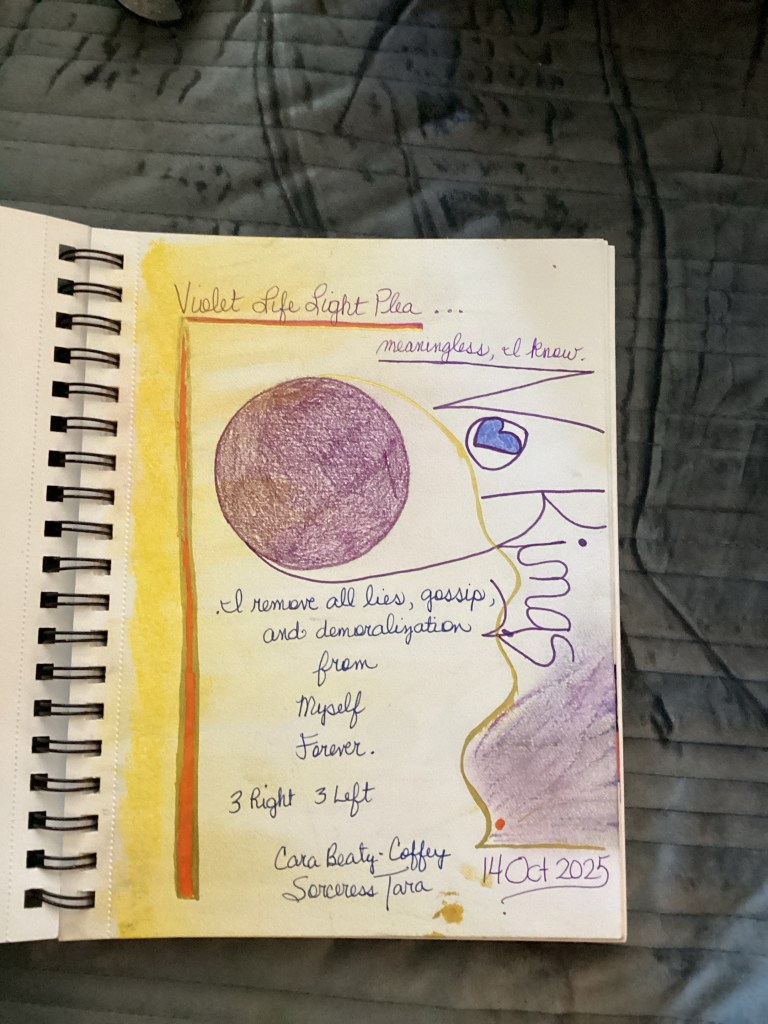 Violet Life Light Plea ...
meaningless, I know.
No
Kings
I remove all lies, gossip,
and demoralization
from
Myself
Forever.
3 Right 3 Left
Cara Beaty-Coffey
Sorceress Tara
14 Oct 2025